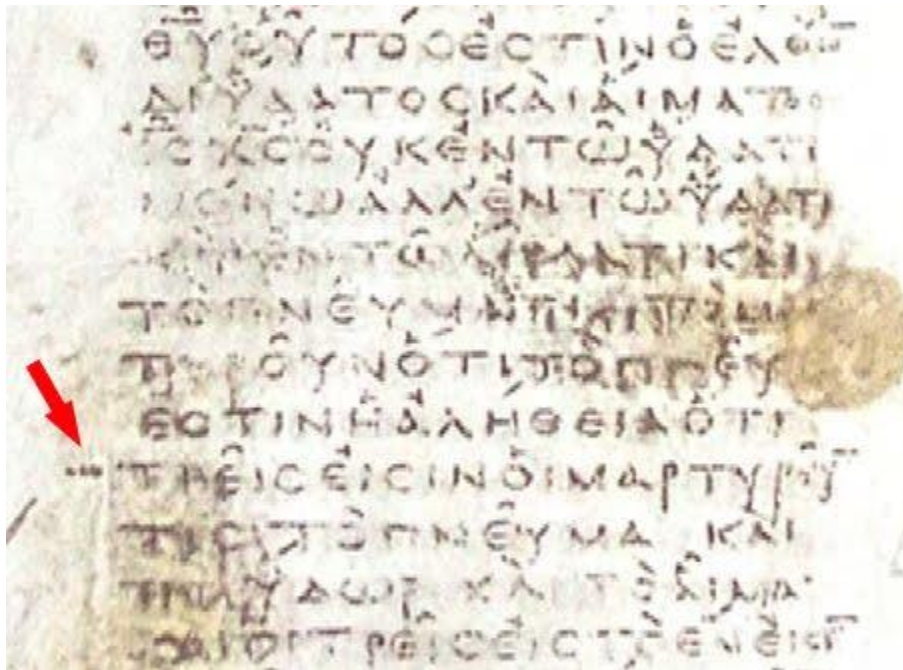 ΘΥ ΟΥΤΟϹ ΕϹΤΙΝ Ο ΕΛΘΩ
ΔΙ ΥΔΑΤΟϹ ΚΑΙ ΑΙΜΑΤΟϹ
ΙϹ ΧϹ ΟΥΚ ΕΝ ΤΩ ΥΔΑΤΙ
ΜΟΝΩ ΑΛΛ ΕΝ ΤΩ ΥΔΑΤΙ
ΚΑΙ ΕΝ ΤΩ ΑΙΜΑΤΙ ΚΑΙ
ΤΟ ΠΝΕΥΜΑ
ΟΤΙ ΤΟ ΠΝΕΥ
ΕϹΤΙΝ Η ΑΛΗΘΕΙΑ ΟΤΙ
ΤΡΕΙϹ ΕΙϹΙΝ ΟΙ ΜΑΡΤΥΡΟΥ
ΤΕϹ ΤΟ ΠΝΕΥΜΑ ΚΑΙ
ΤΟ ΥΔΩΡ ΚΑΙ ΤΟ ΑΙΜΑ
ΚΑΙ ΟΙ ΤΡΕΙϹ ΕΙϹ ΤΟ ΕΝ ΕΙϹΙ